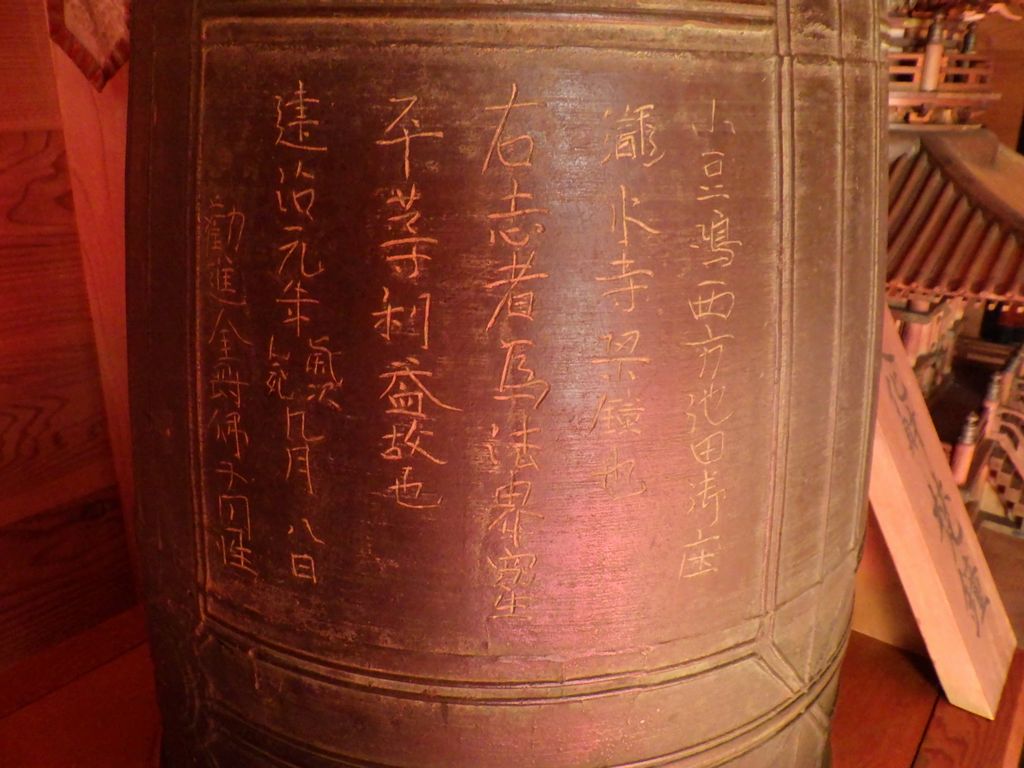 小豆嶋西方池田御座
瀧水寺 鐘也
右志者為法界霊
平等利益故也
建治元年歳次乙亥九月八日
勧進金 佛子同性